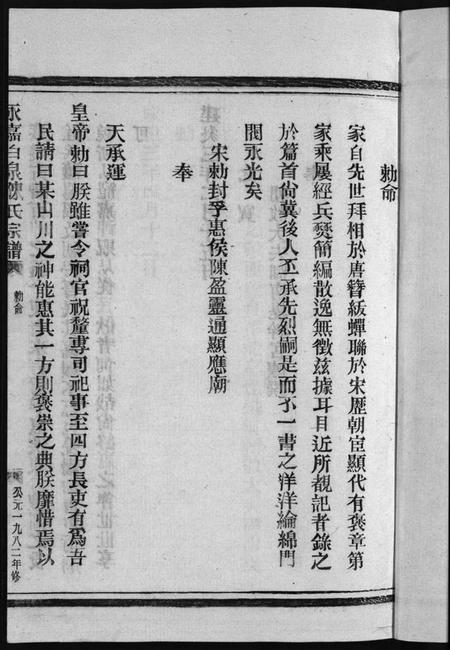 勅命
家自先世拜相於唐簪紱蟬聯於宋歷朝宦顯代有褒章第
家乘屢經兵燹簡編散逸無徵茲據耳目近所覩記者錄之
於篇首尚冀後人丕承先烈嗣是而不一書之洋洋綸綿門
閥永光矣
宋勅封孚惠侯陳盈靈通顯應廟
奉
天承運
皇帝勅曰朕雖嘗令祠官祝釐專司祀事至四方長吏有為吾
民請曰某山川之神能惠其一方則褒崇之典朕靡惜焉以
永嘉白泉陳氏宗譜
勅命
公元一九八二年修